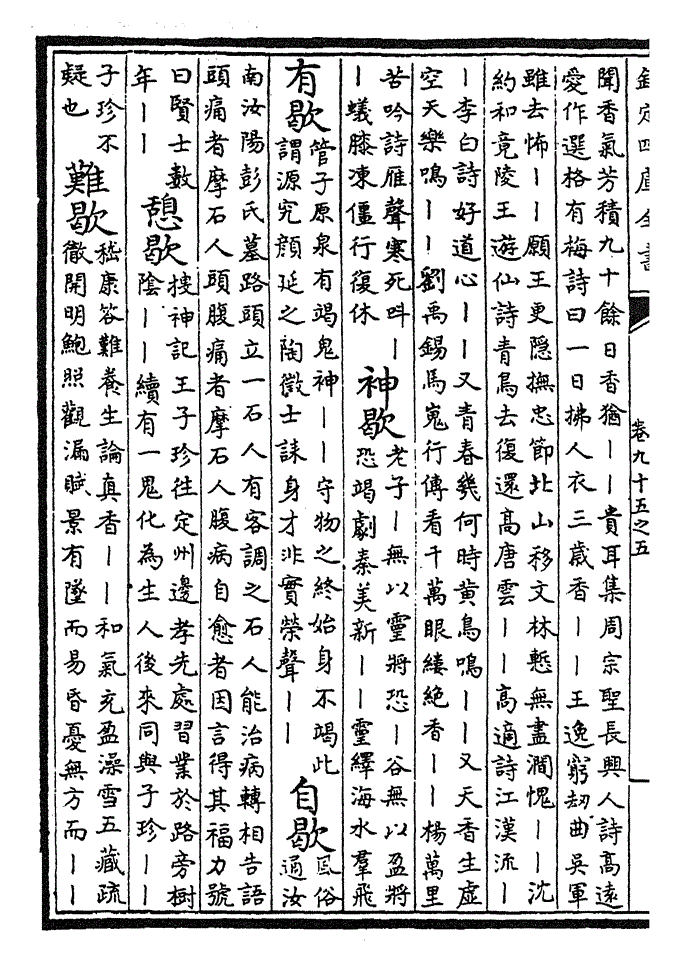 欽定四庫全書
卷九十五之五
聞香氣芳積九十餘日香猶丨丨貴耳集周宗聖長興人詩高遠
愛作選格有梅詩曰一日拂人衣三歲香丨丨王逸窮劫曲吳軍
雖去怖丨丨願王更隱撫忠節北山移文林慙無盡澗愧丨丨沈
約和竟陵王遊仙詩青鳥去復還高唐雲丨丨高適詩江漢流丨
丨李白詩好道心丨丨又青春幾何時黄鳥鳴丨丨又天香生虚
空天樂鳴丨丨劉禹錫馬嵬行傳看千萬眼縷絶香丨丨楊萬里
苦吟詩雁聲寒死呌丨
丨蟻膝凍僵行復休
神歇
老子丨無以靈將恐丨谷無以盈將
恐竭劇秦美新丨丨靈繹海水羣飛
有歇
管子原泉有竭鬼神丨丨守物之終始身不竭此
謂源究顔延之陶徵士誄身才非實榮聲丨丨
自歇
風俗
通汝
南汝陽彭氏墓路頭立一石人有客調之石人能治病轉相告語
頭痛者摩石人頭腹痛者摩石人腹病自愈者因言得其福力號
曰賢士數
年丨丨
憩歇
搜神記王子珍徃定州邊孝先處習業於路旁樹
陰丨丨續有一鬼化為生人後來同與子珍丨丨
子珍不
疑也
難歇
嵇康答難養生論真香丨丨和氣充盈澡雪五藏疏
徹開明鮑照觀漏賦景有墜而易昏憂無方而丨丨